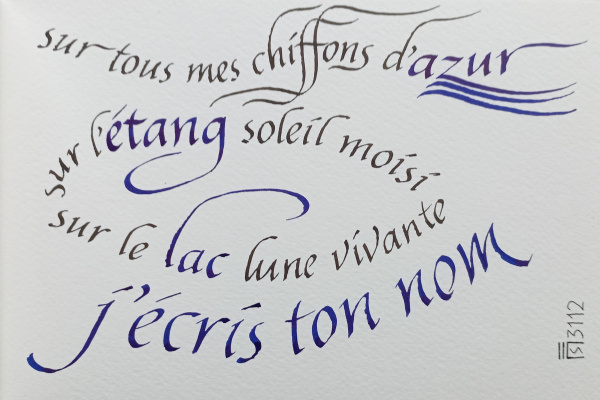 sur tous mes chiffons d'azur
sur l'étang soleil moisi
sur le lac lune vivante
j'écris ton nom
3112